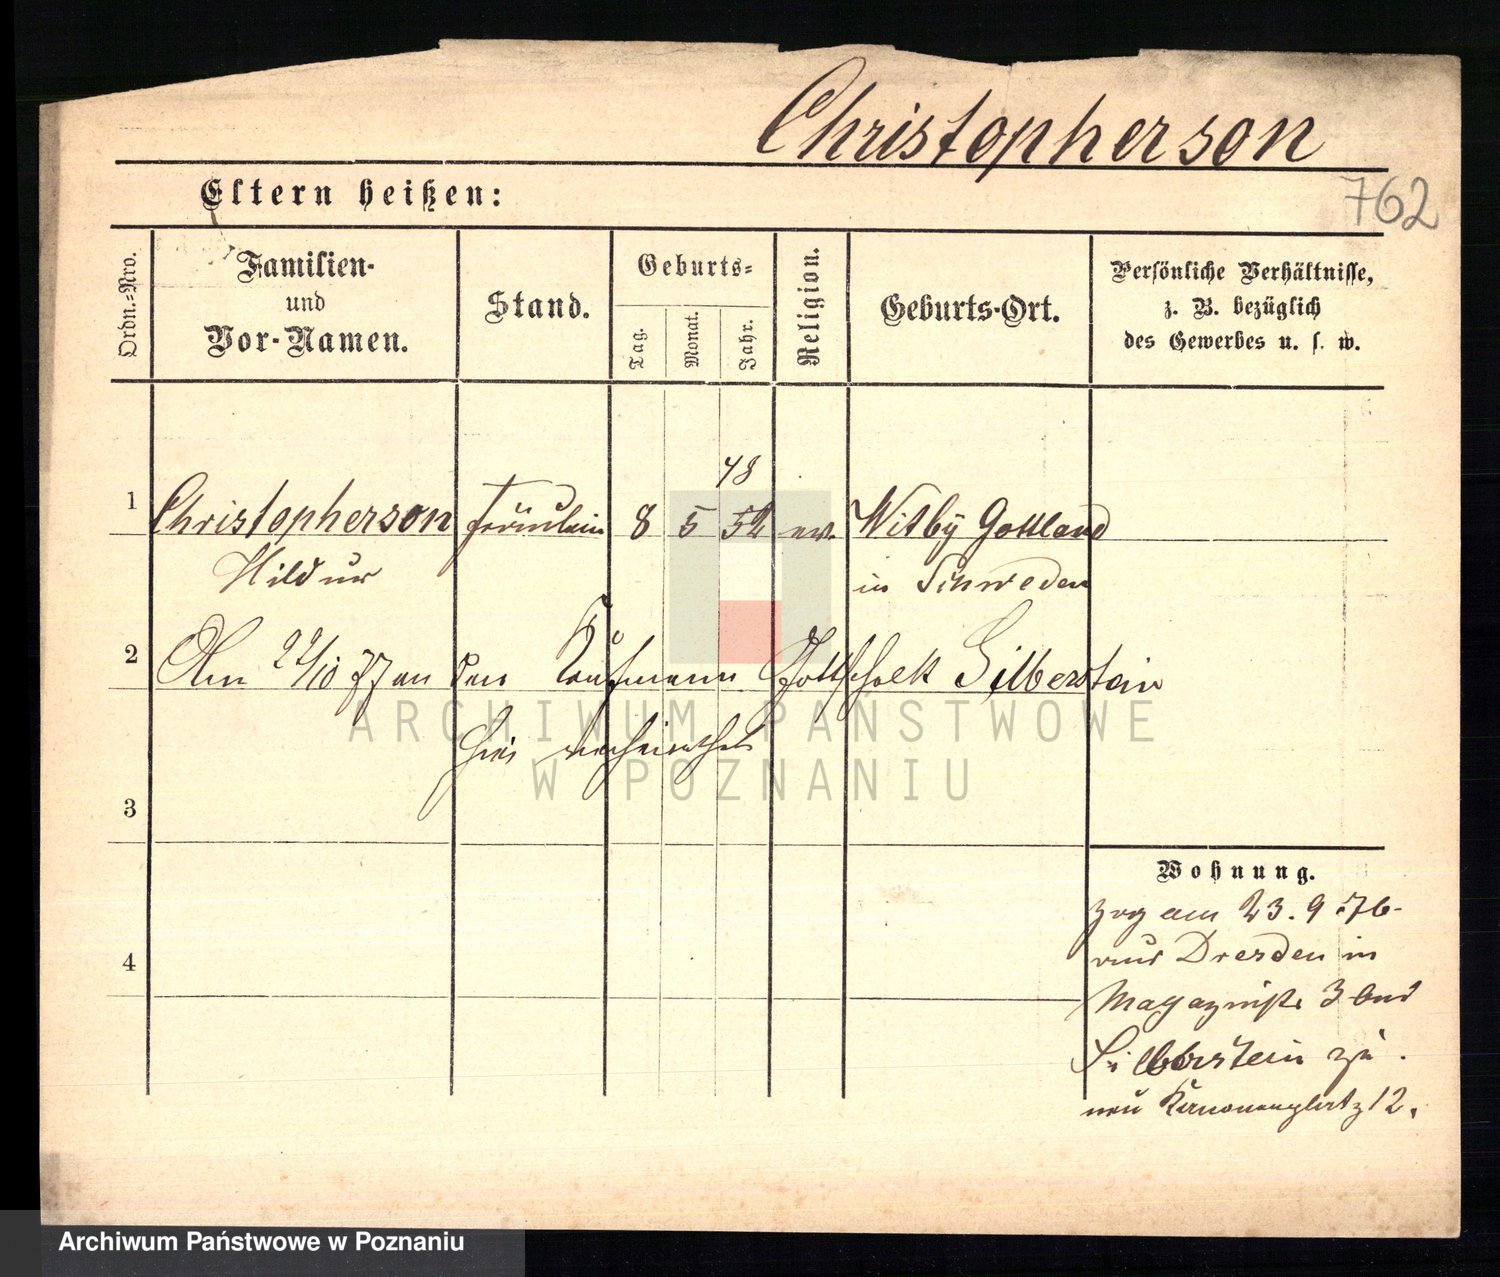 Christopherson
762
Eltern heißen:
Ordn.-Nro.
Familien-
und
Vor-Namen.
Stand.
Geburts-
Tag.
Monat.
Jahr.
Religion.
Geburts-Ort.
Persönliche Verhältnisse,
z. B. bezüglich
des Gewerbes u. s. w.
48
1 Christopherson Fräulein 8 5 52 ev. Witby Gottland
Hildur in Schweden
2 Am 22/10 77 an den Kaufmann Gottschalk Silberstein
hier verheirathet
3
4
Wohnung.
zog am 23. 9. 76.
aus Dresden in
Magazinstr. 3 bei
Silberstein zu.
neu Kanonenplatz 12.
ARCHIWUM PAŃSTWOWE
W POZNANIU
Archiwum Państwowe w Poznaniu